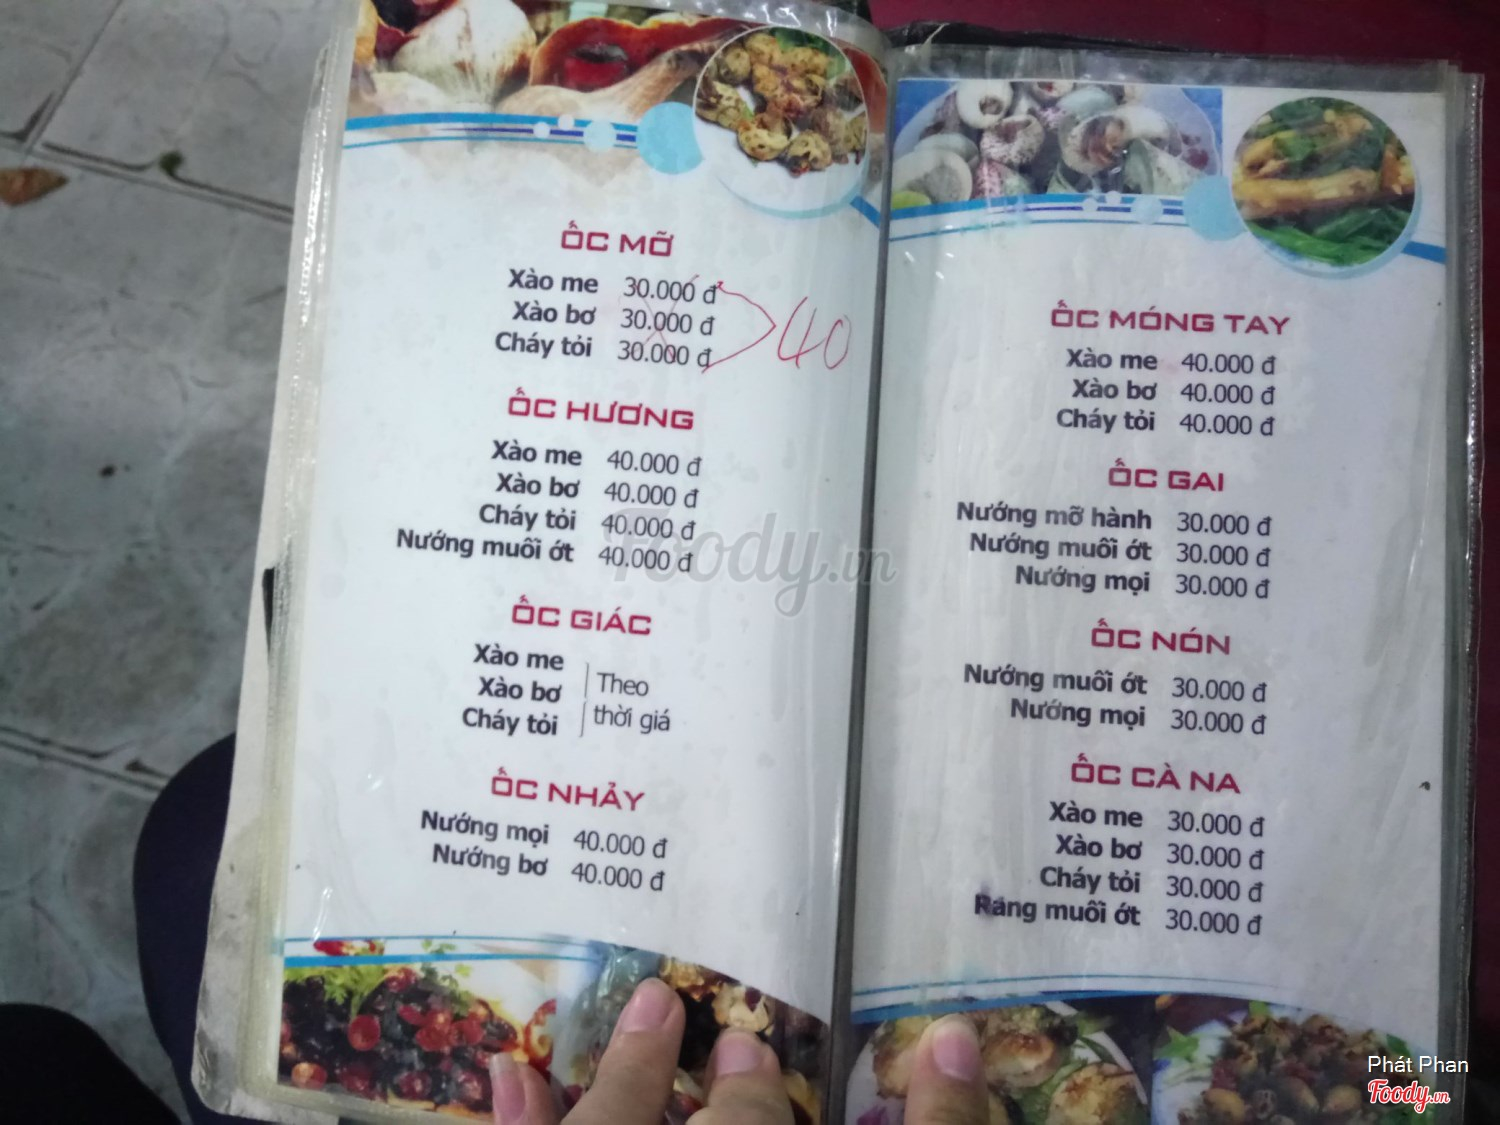 ỐC MỠ
Xào me 30.000 đ
Xào bơ 30.000 đ
Cháy tỏi 30.000 đ
40
ỐC HƯƠNG
Xào me 40.000 đ
Xào bơ 40.000 đ
Cháy tỏi 40.000 đ
Nướng muối ớt 40.000 đ
ỐC GIÁC
Xào me
Xào bơ
Cháy tỏi
Theo
thời giá
ỐC NHẢY
Nướng mọi 40.000 đ
Nướng bơ 40.000 đ
ỐC MÓNG TAY
Xào me 40.000 đ
Xào bơ 40.000 đ
Cháy tỏi 40.000 đ
ỐC GAI
Nướng mỡ hành 30.000 đ
Nướng muối ớt 30.000 đ
Nướng mọi 30.000 đ
ỐC NÓN
Nướng muối ớt 30.000 đ
Nướng mọi 30.000 đ
ỐC CÀ NA
Xào me 30.000 đ
Xào bơ 30.000 đ
Cháy tỏi 30.000 đ
Rang muối ớt 30.000 đ
Foody.vn
Phát Phan
Foody.vn